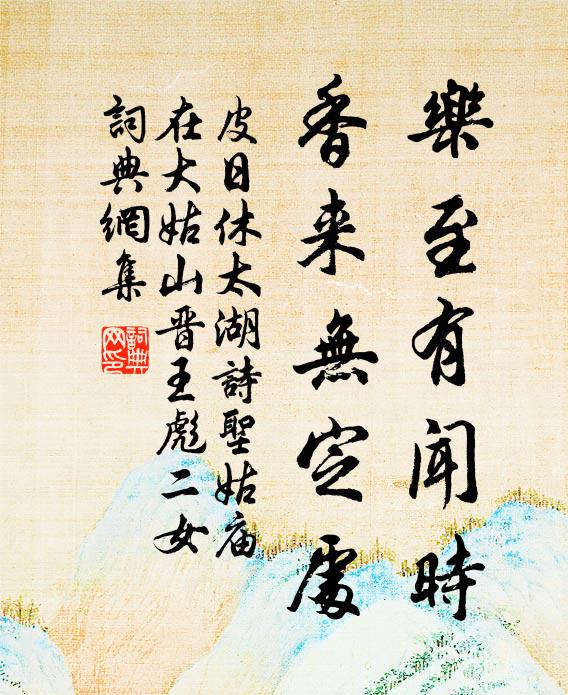 樂至有闻時
香来無定處
皮日休太湖詩聖姑庙
在大姑山晋王彪二女
詞典網集
詞典網印